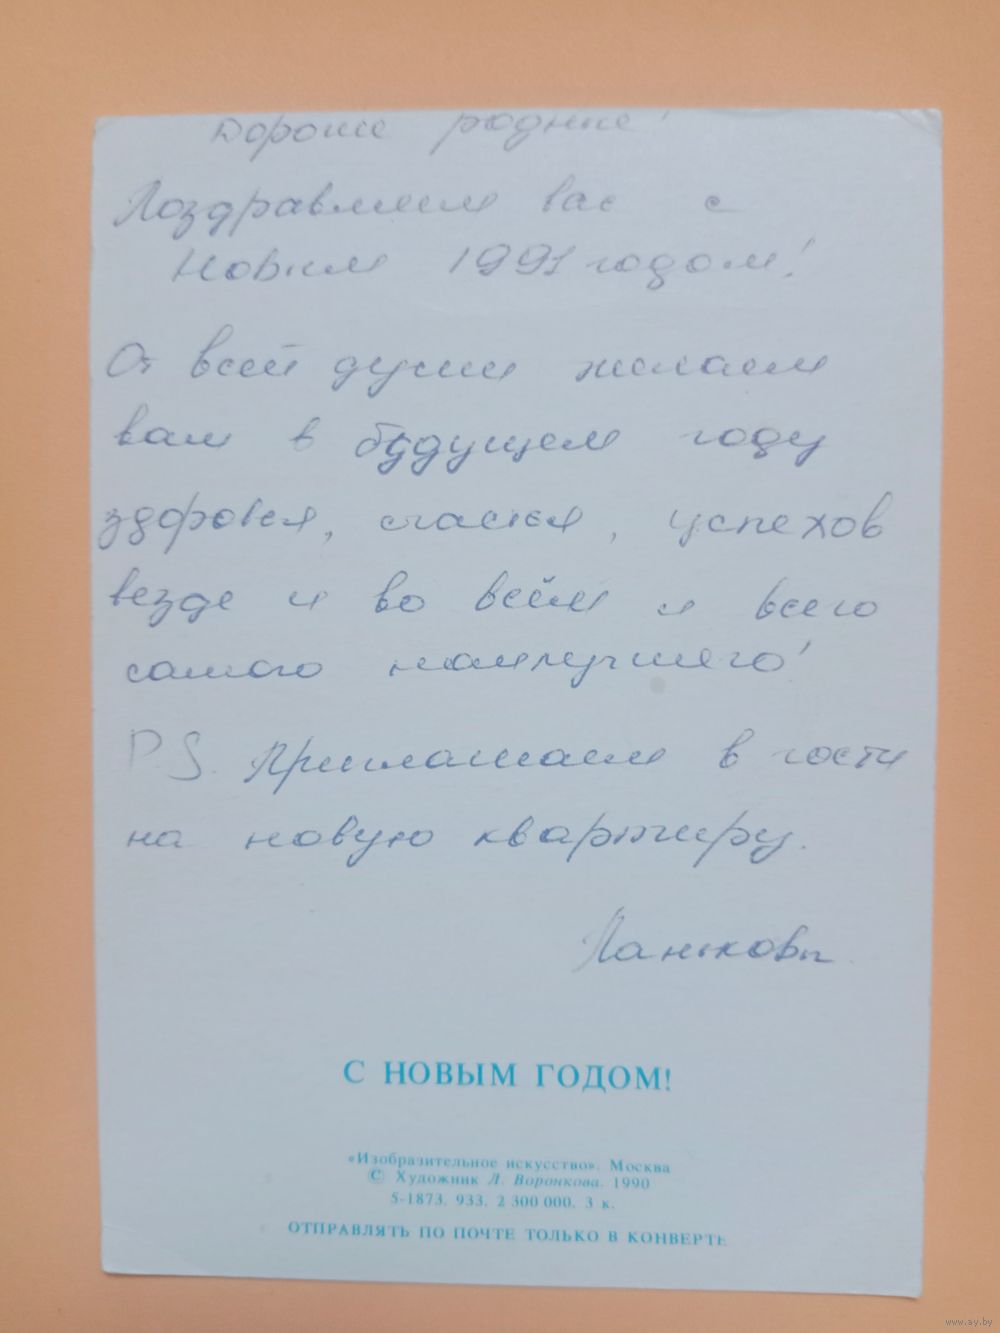 Дорогие родные!
Поздравляем вас с
Новым 1991 годом!
От всей души желаем
вам в будущем году
здоровья, счастья, успехов
везде и во всём и всего
самого наилучшего!
P.S. Приглашаем в гости
на новую квартиру.
Паньковы
С НОВЫМ ГОДОМ!
«Изобразительное искусство». Москва
© Художник Л. Воронкова. 1990
5-1873. 933. 2 300 000. 3 к.
ОТПРАВЛЯТЬ ПО ПОЧТЕ ТОЛЬКО В КОНВЕРТЕ
www.ay.by